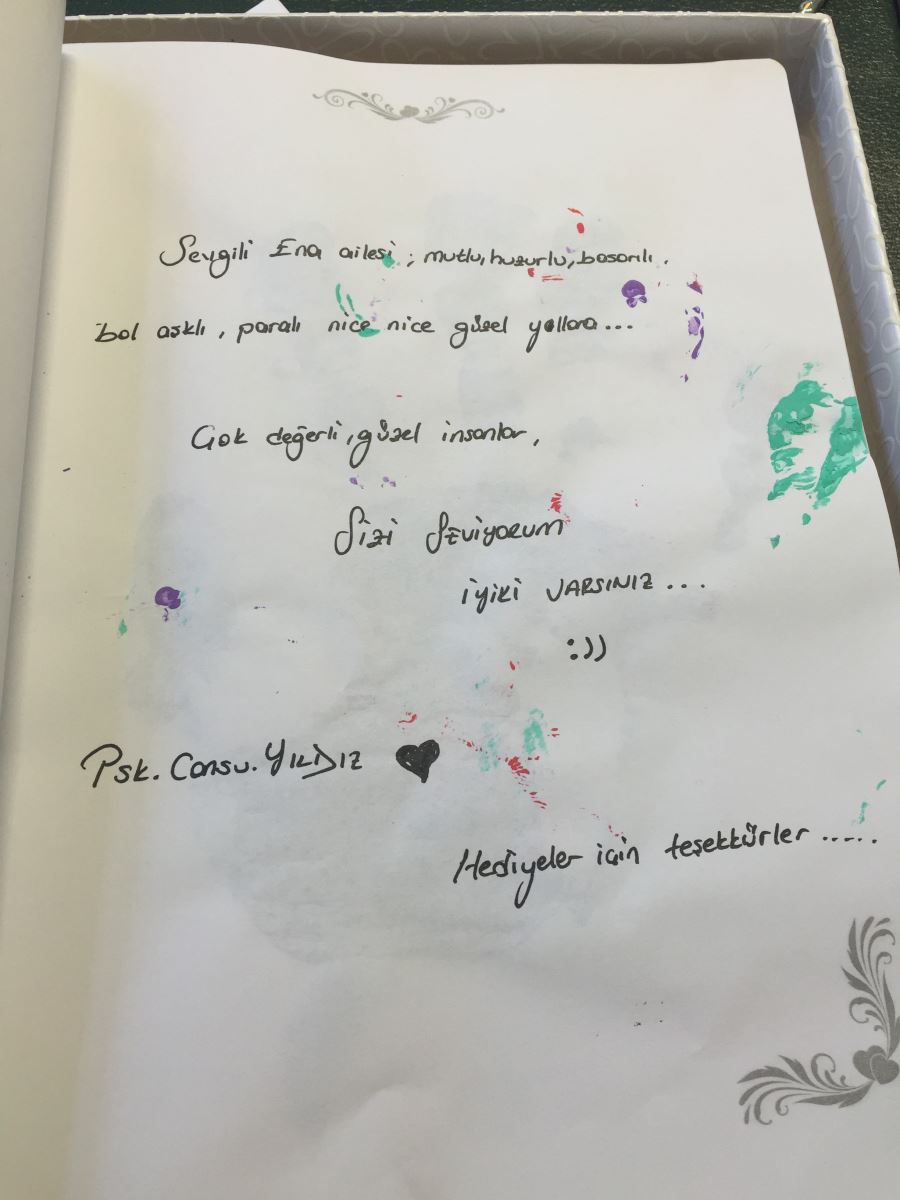 Sevgili Ena ailesi ; mutlu, huzurlu, başarılı,
bol aşklı, paralı nice nice güzel yıllara...
Çok değerli, güzel insanlar,
Sizi Seviyorum
iyiki VARSINIZ ...
:))
Psk. Cansu. YILDIZ ♥
Hediyeler için teşekkürler .....